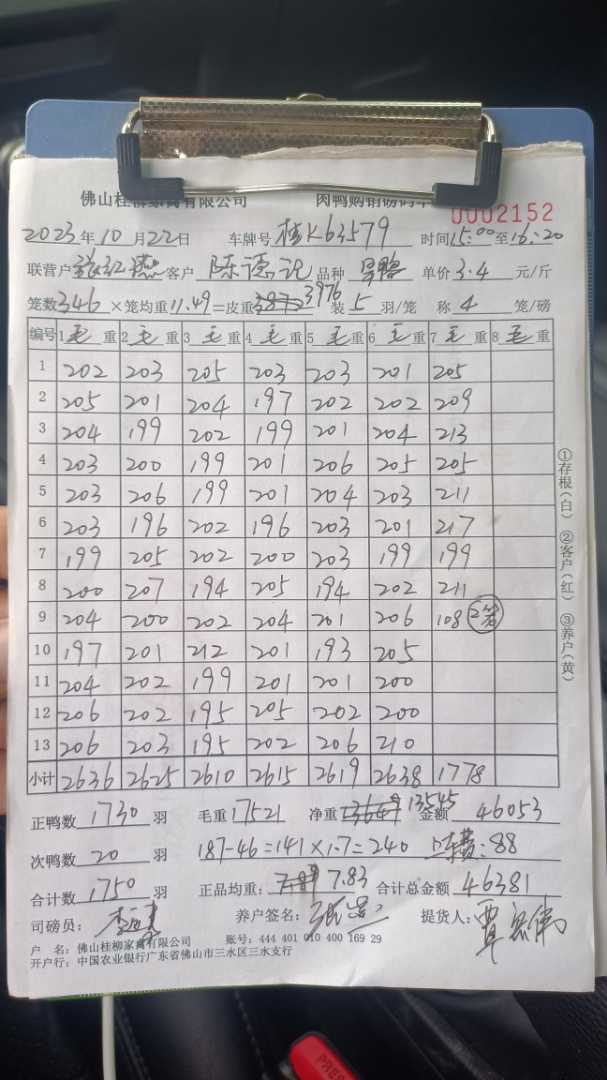 佛山桂柳家禽有限公司 肉鸭购销磅码单
0002152
2023年10月22日 车牌号 桂K63579 时间15:00至16:20
联营户 客户 陈德记 品种 单价3.4元/斤
笼数346×笼均重11.49=皮重3873 3976 装5羽/笼 称4笼/磅
编号 1毛重 2毛重 3毛重 4毛重 5毛重 6毛重 7毛重 8毛重
1 202 203 205 203 203 201 205
2 205 201 204 197 202 202 209
3 204 199 202 199 201 204 213
4 203 200 199 201 206 205 205
5 203 206 199 201 204 203 211
6 203 196 202 196 203 201 217
7 199 205 202 200 203 199 199
8 200 207 194 205 194 202 211
9 204 200 202 204 201 206 108 2笼
10 197 201 212 201 193 205
11 204 202 199 201 201 200
12 206 202 195 205 202 200
13 206 203 195 202 206 210
小计 2636 2625 2610 2615 2619 2638 1778
正鸭数1730羽 毛重17521 净重13545 金额46053
次鸭数20羽 187-46=141×1.7=240 :88
合计数1750羽 正品均重:7.83 合计总金额46381
司磅员: 养户签名: 提货人:
户 名:佛山桂柳家禽有限公司 账号:444 401 010 400 169 29
开户行:中国农业银行广东省佛山市三水区三水支行
①存根(白) ②客户(红) ③养户(黄)
PRESS